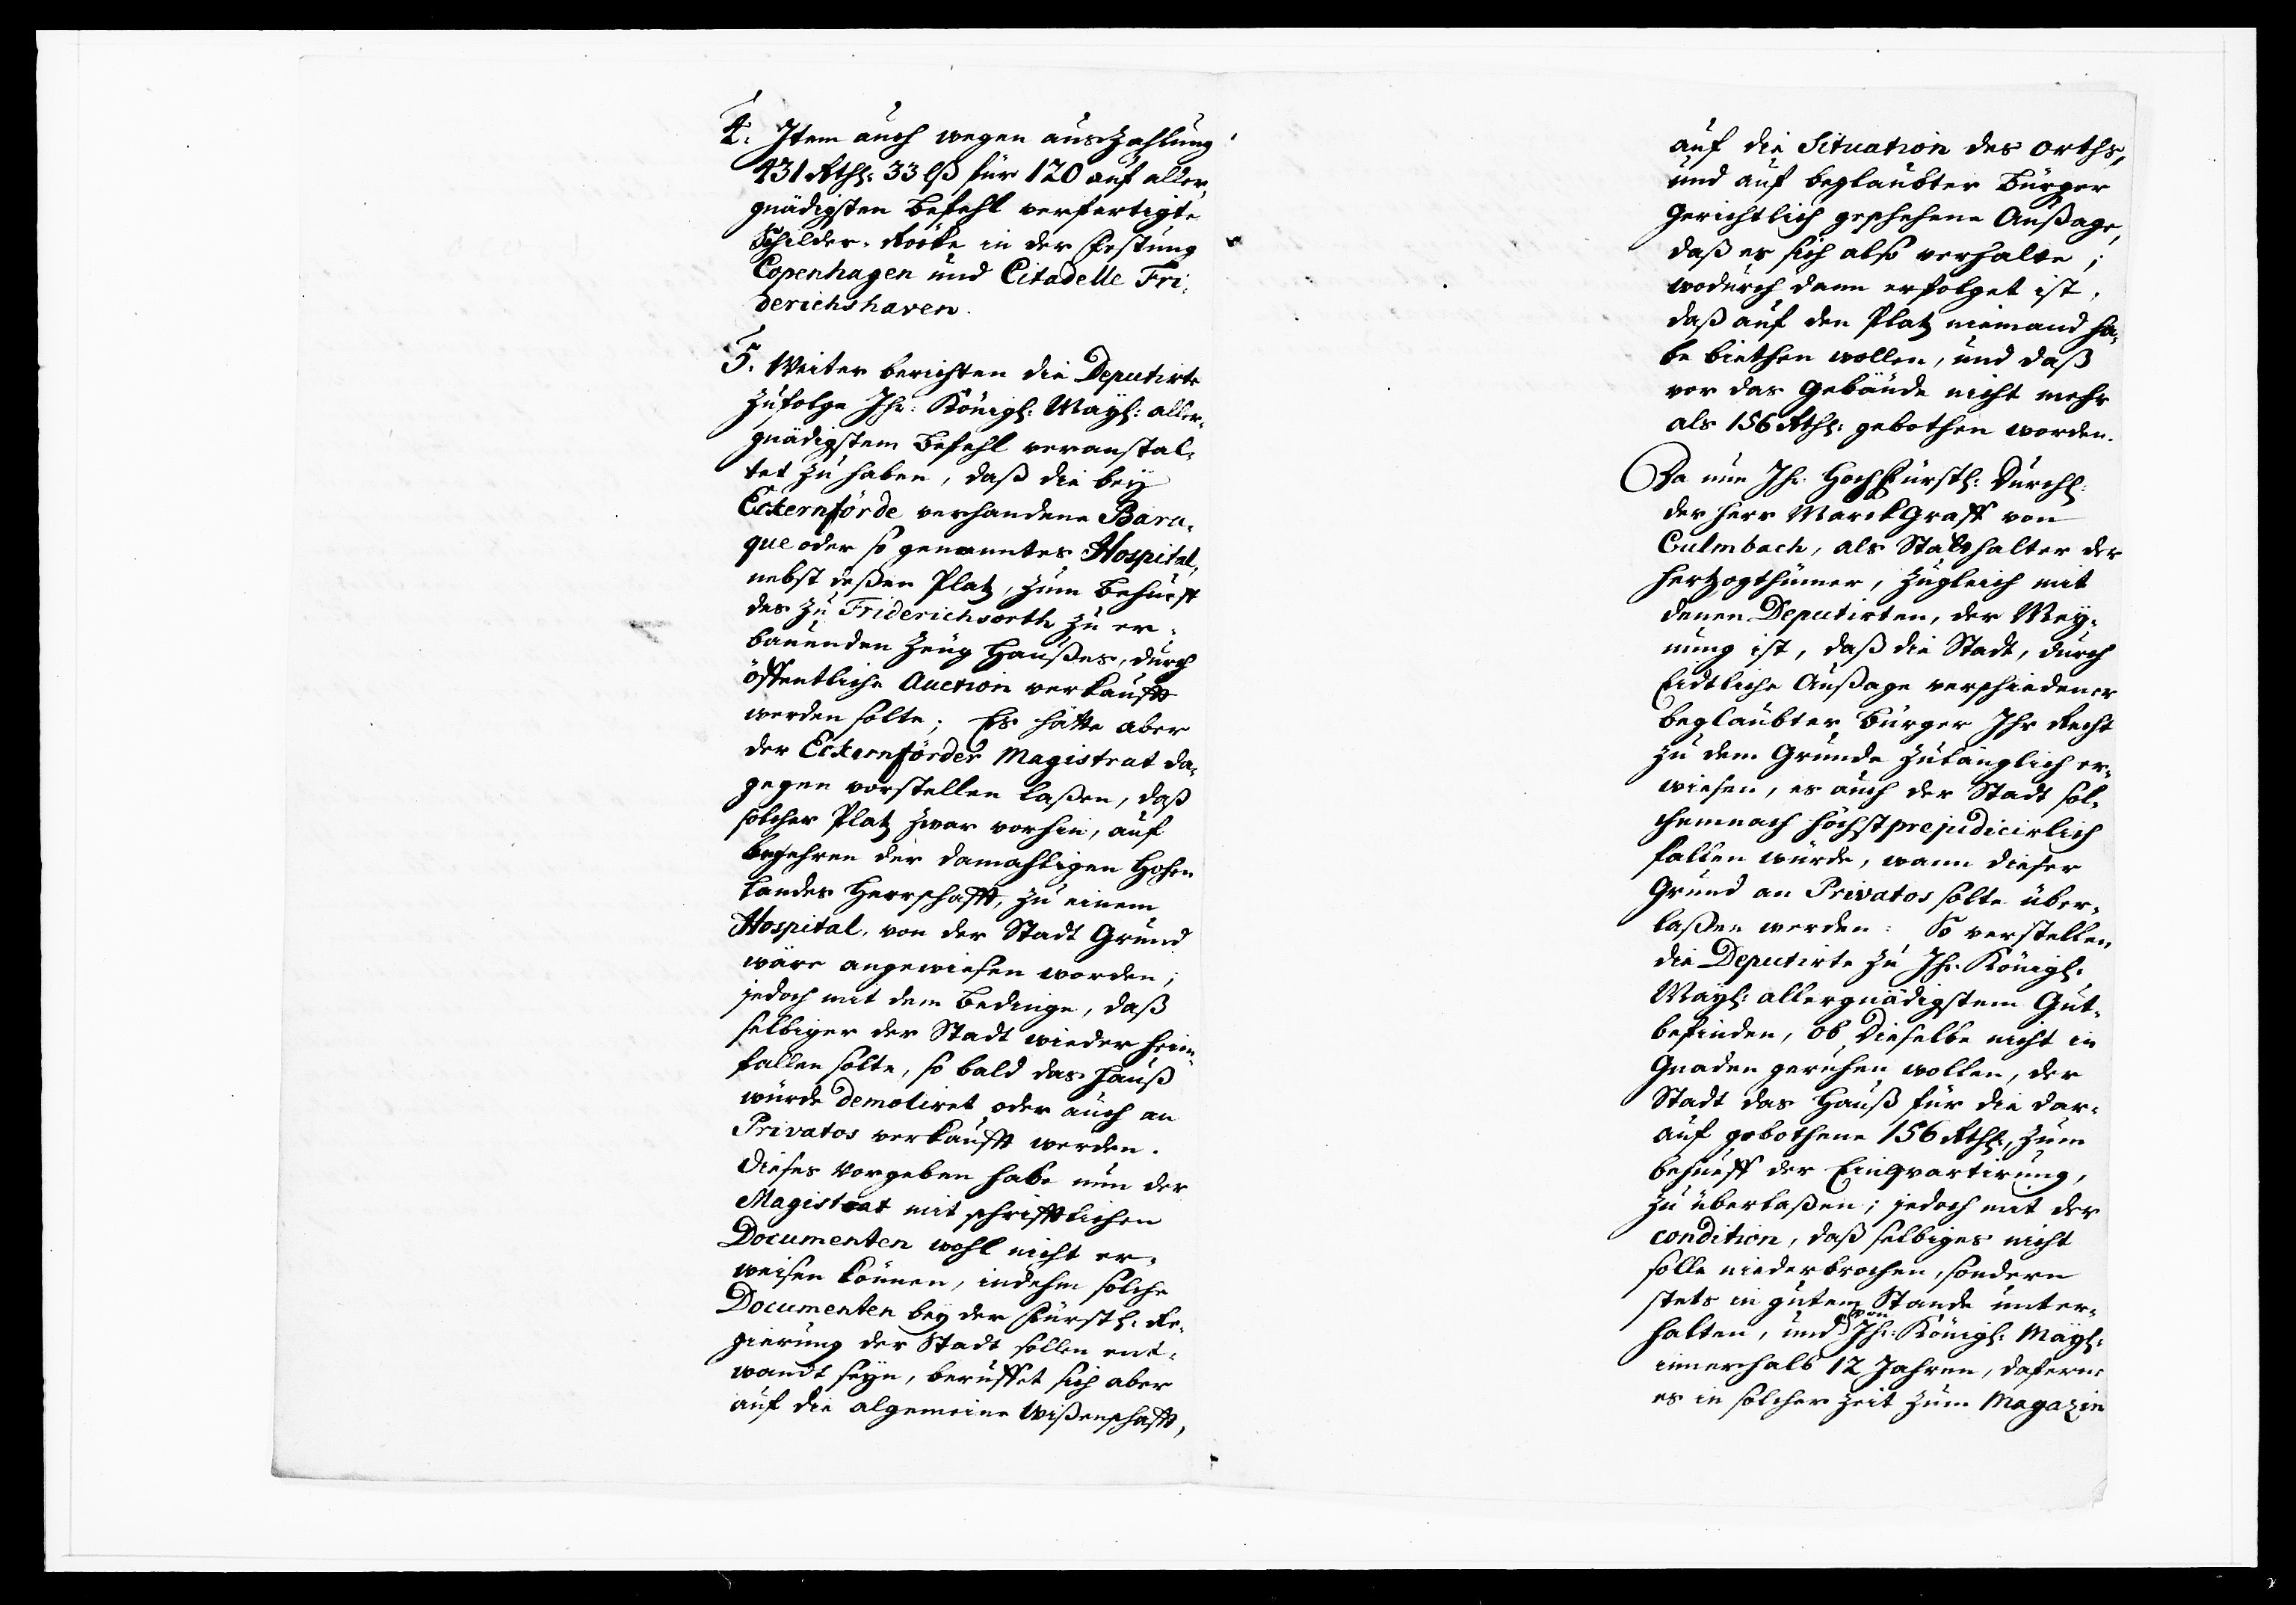 4. Item auch wegen auszahlung
431 Rthl: 33 lß für 120 auf aller-
gnädigsten Befehl verfertigte
Schilder-Röcke in der Festung
Copenhagen und Citadelle Fri-
derichshaven.
5. Weiter berichten die Deputirte
zufolge Ihr: Königl: Mayl: aller-
gnädigstem Befehl veranstal-
tet zu haben, daß die bey
Eckernförde verhandene Bara-
que oder so genanntes Hospital,
nebst deßen Platz, zum Behueff
des zu Friderichsorth zu er-
bauenden Zeug Haußes, durch
öffentliche Auction verkaufft
werden solte; Es hätte aber
der Eckernförder Magistrat da-
gegen vorstellen laßen, daß
solcher Platz zwar vorhin, auf
begehren der damahligen Hohen
Landes Herrschafft, zu einem
Hospital, von der Stadt Grund
wäre angewiesen worden;
jedoch mit dem Bedinge, daß
selbiger der Stadt wieder heim-
fallen solte, so bald das Hauß
würde demoliret oder auch an
Privatos verkaufft werden.
Dieses Vorgeben habe nun der
Magistrat mit schrifftlichen
Documenten wohl nicht er-
weisen können, indehm solche
Documenten bey der Fürstl: Re-
gierung der Stadt sollen ent-
wandt seyn, beruffet sich aber
auf die algemeine Wißenschafft,
auf die Situation des Orths,
und auf beglaubter Bürger
Gerichtlich geschehene Außage,
daß es sich also verhalte;
wodurch dann erfolget ist,
daß auf den Platz niemand ha-
be biethen wollen, und daß
vor das Gebäude nicht mehr
als 156 Rthl: gebothen worden.
Da nun Ihr: HochFürstl: Durchl:
der Herr MarckGraff von
Culmbach, als Stathalter der
Hertzogthümer, zugleich mit
denen Deputirten, der Mey-
nung ist, daß die Stadt, durch
Eidtliche Außage verschiedener
beglaubter Bürger Ihr Recht
zu dem Grunde zulänglich er-
wiesen, es auch der Stadt sol-
chemnach höchst prejudicirlich
fallen würde, wann dieser
Grund an Privatos solte über-
laßen werden: So verstellen
die Deputirte zu Ihr: Königl:
Mayl: allergnädigstem Gut-
befinden, ob Dieselbe nicht in
Gnaden geruhen wollen, der
Stadt das Hauß für die dar-
auf gebothene 156 Rthl:, zum
behueff der Einqvartirung,
zu überlaßen; jedoch mit der
condition, daß selbiges nicht
solle niederbrochen, sondern
stets in gutem Stande unter-
halten, und von Ihr: Königl: Mayl:
innerhalb 12 Jahren, daferne
es in solcher Zeit zum Magazin